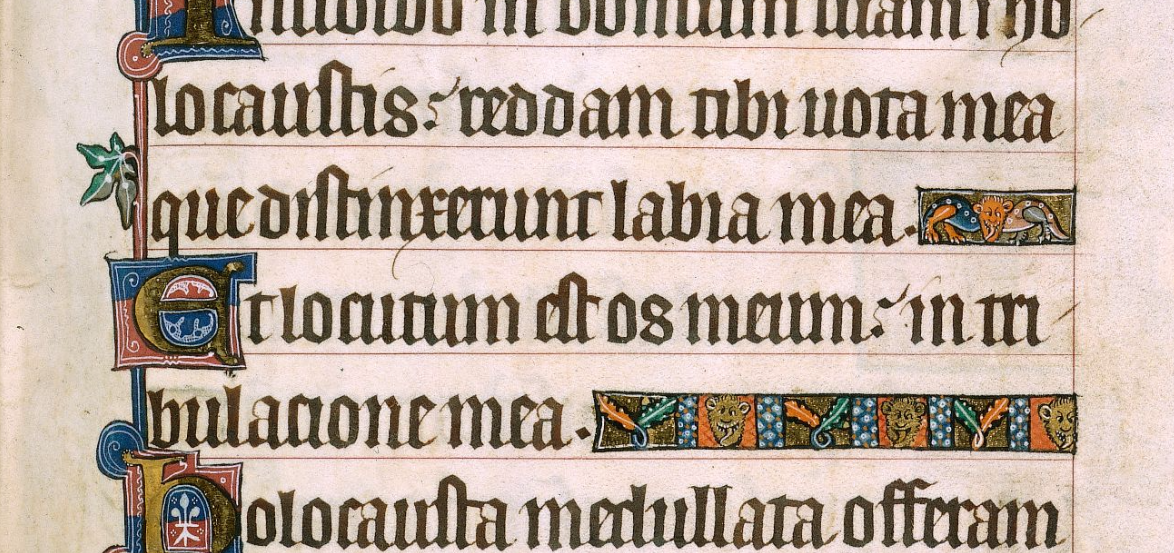 Introibo in domum tuam in ho
locaustis: reddam tibi uota mea
que distinxerunt labia mea.
Et locutum est os meum: in tri
bulacione mea.
Holocausta medullata offeram